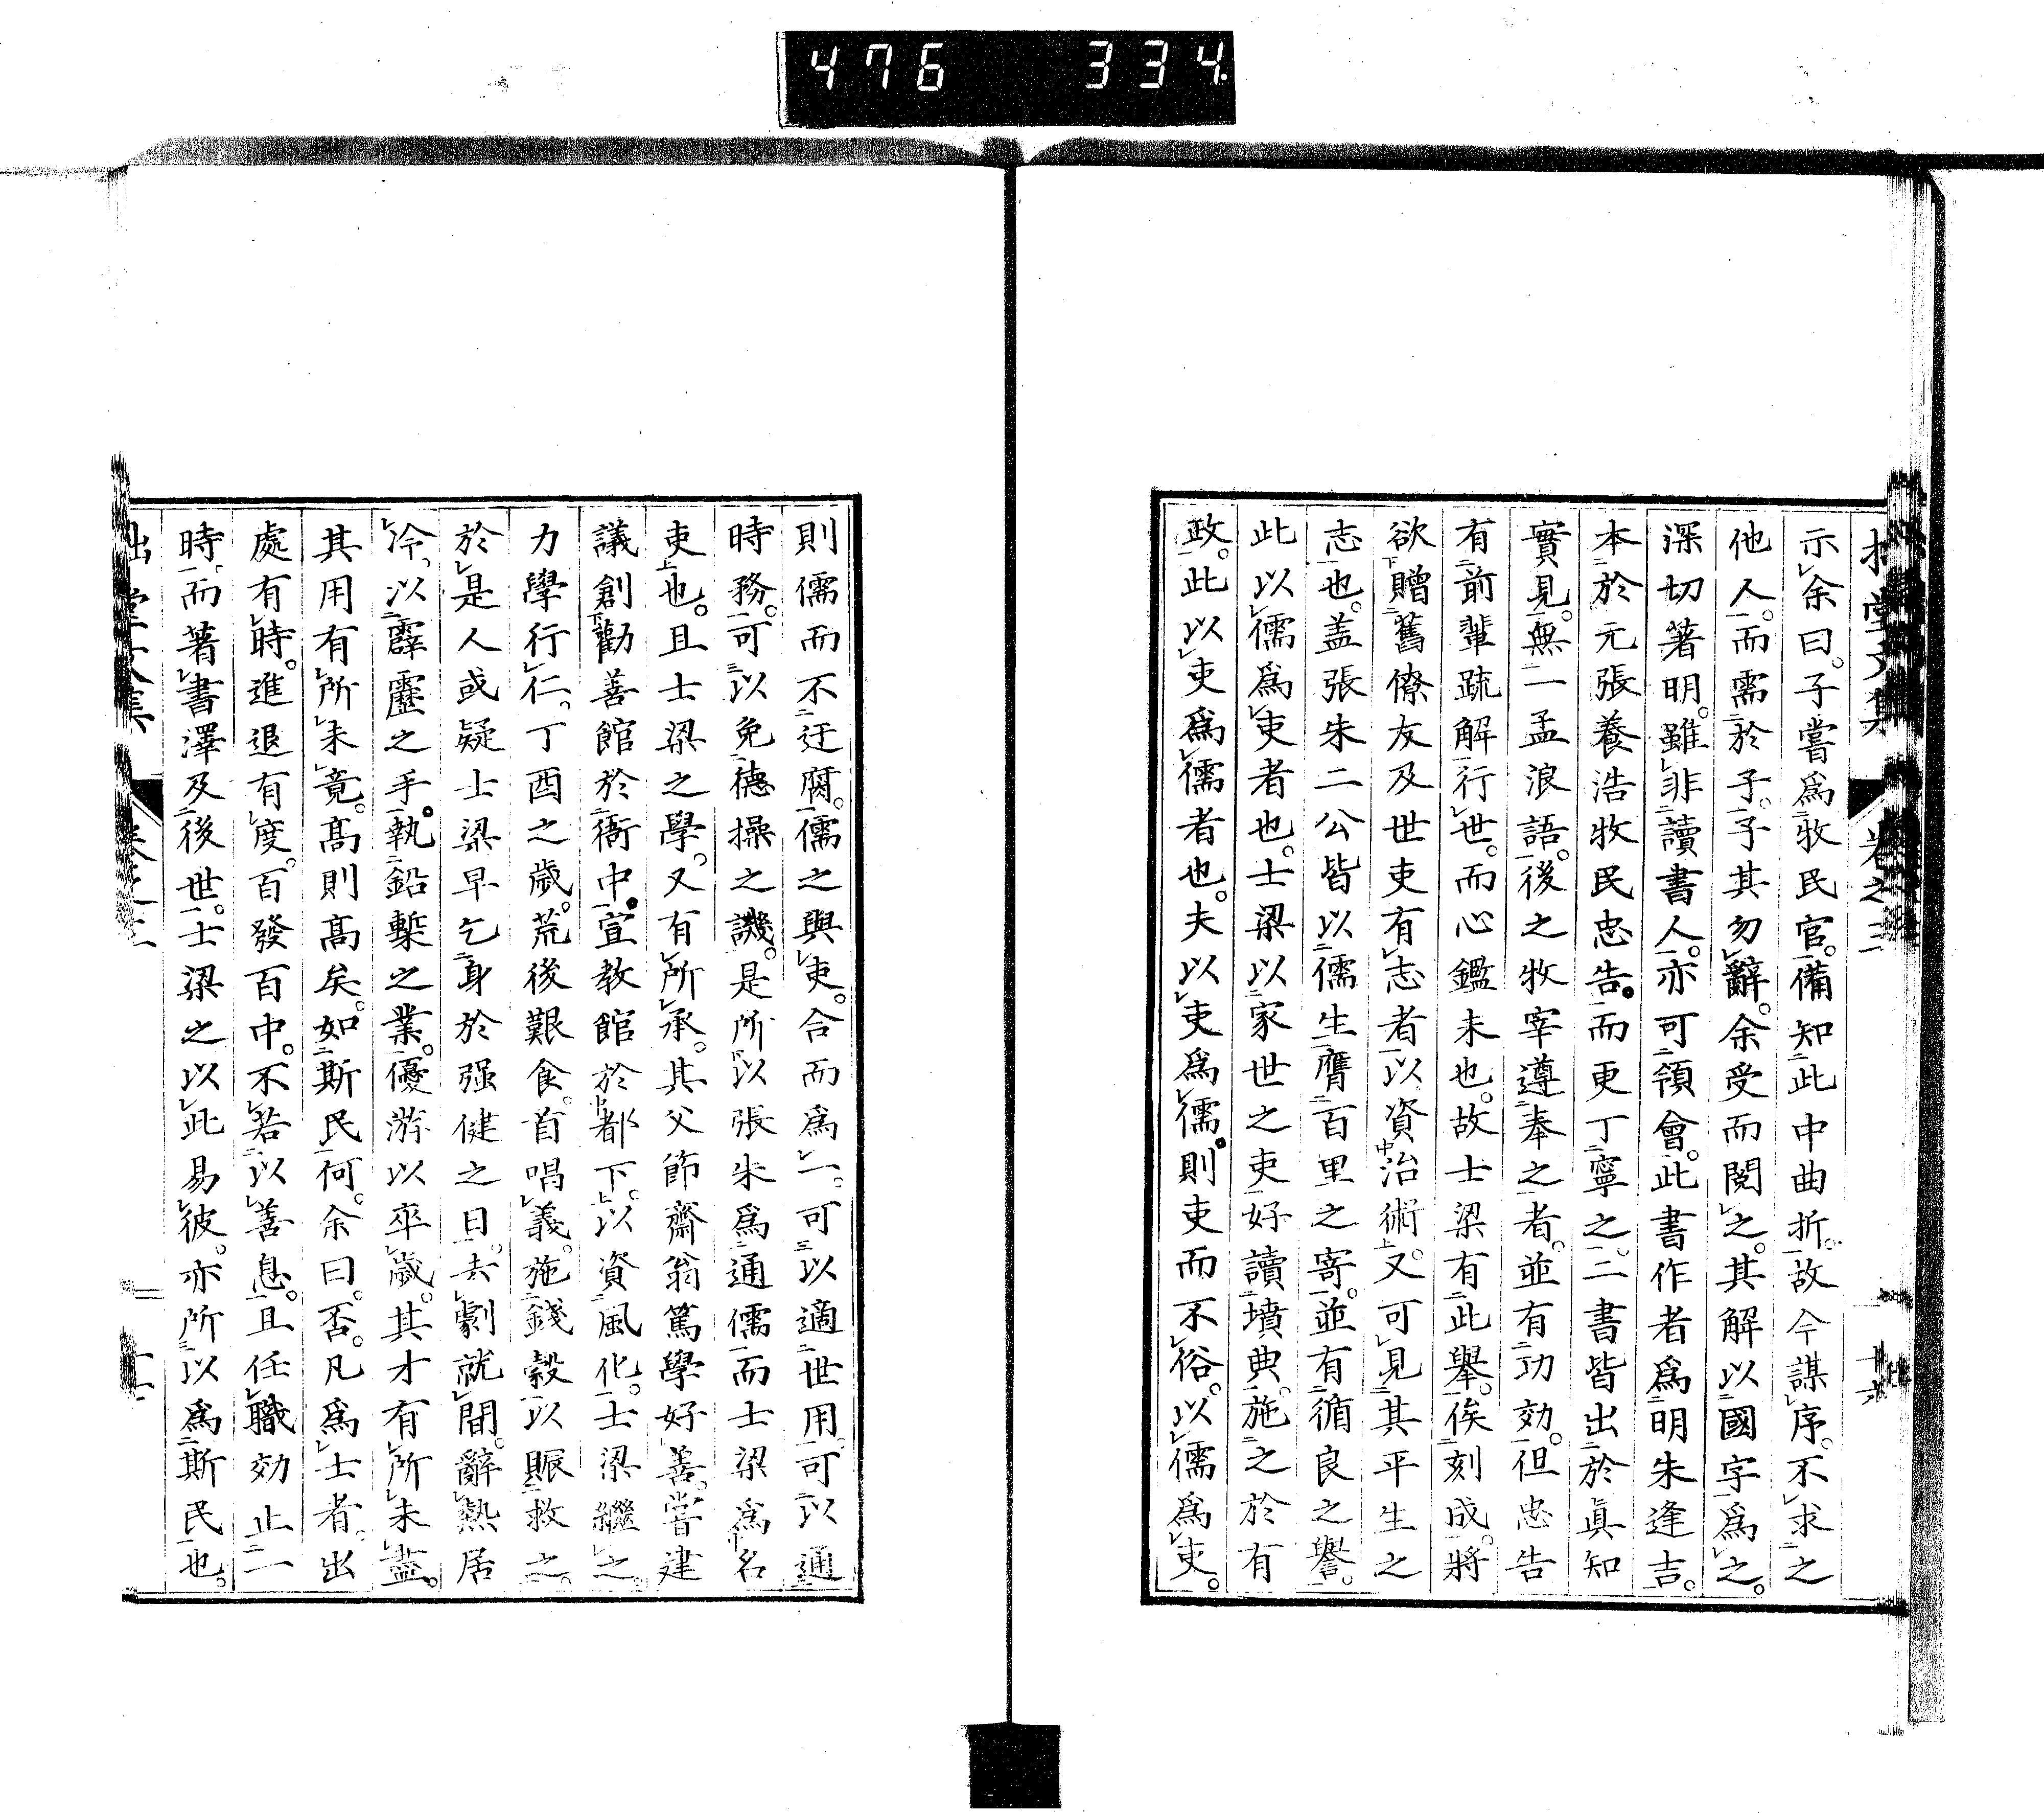 476 334
堂文集 卷之三
示余曰。子嘗爲牧民官。備知此中曲折。故今謀序。不求之
他人。而需於子。子其勿辭。余受而閱之。其解以國字爲之。
深切著明。雖非讀書人。亦可領會。此書作者爲明朱逢吉。
本於元張養浩牧民忠告。而更丁寧之。二書皆出於眞知
實見。無一孟浪語。後之牧宰遵奉之者。並有功効。但忠告
有前輩疏解行世。而心鑑未也。故士梁有此舉。俟刻成。將
欲贈舊僚友及世吏有志者以資治術。又可見其平生之
志也。盖張朱二公皆以儒生膺百里之寄。並有循良之譽。
此以儒爲吏者也。士梁以家世之吏好讀墳典。施之於有
政。此以吏爲儒者也。夫以吏爲儒。則吏而不俗。以儒爲吏。
則儒而不迂腐。儒之與吏。合而爲一。可以適世用。可以通
時務。可以免德操之譏。是所以張朱爲通儒而士梁爲名
吏也。且士梁之學。又有所承。其父節齋翁篤學好善。嘗建
議創勸善館於衙中。宣教館於都下。以資風化。士梁繼之。
力學行仁。丁酉之歲。荒後艱食。首唱義。施錢穀以賑救之。
於是人或疑士梁早乞身於强健之日。去劇就閒。辭熱居
冷。以霹靂之手。執鉛槧之業。優游以卒歲。其才有所未盡。
其用有所未竟。高則高矣。如斯民何。余曰。否。凡爲士者。出
處有時。進退有度。百發百中。不若以善息。且任職効止一
時。而著書澤及後世。士梁之以此易彼。亦所以爲斯民也。
堂文集